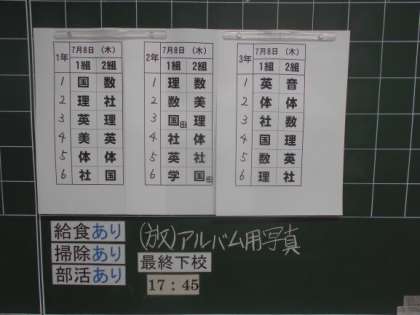 1年 7月8日 (木)
1組 2組
1 国 数
2 理 社
3 英 理
4 美 英
5 体 体
6 社 国
2年 7月8日 (木)
1組 2組
1 理 数
2 数 美
3 国 理
4 社 体
5 英 社
6 学 国
3年 7月8日 (木)
1組 2組
1 英 音
2 体 体
3 社 数
4 国 理
5 数 英
6 理 社
給食あり
掃除あり
部活あり
(放)アルバム用写真
最終下校
17:45